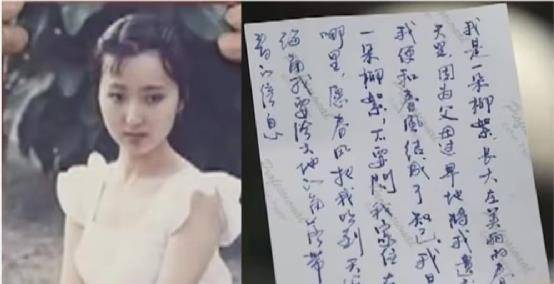 我是一朵柳絮,长大在美丽的春
天里,因为父母过早地将我遗
我便和春风结成了知己,我
一朵柳絮,不要问我家住在
哪里,愿春风把我吹到天
海角,我要给大地的角落带
春的信息